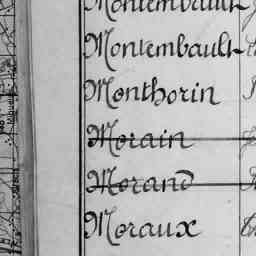 Montembault
Montembault
Monthorin
Morain
Morand
Moraux